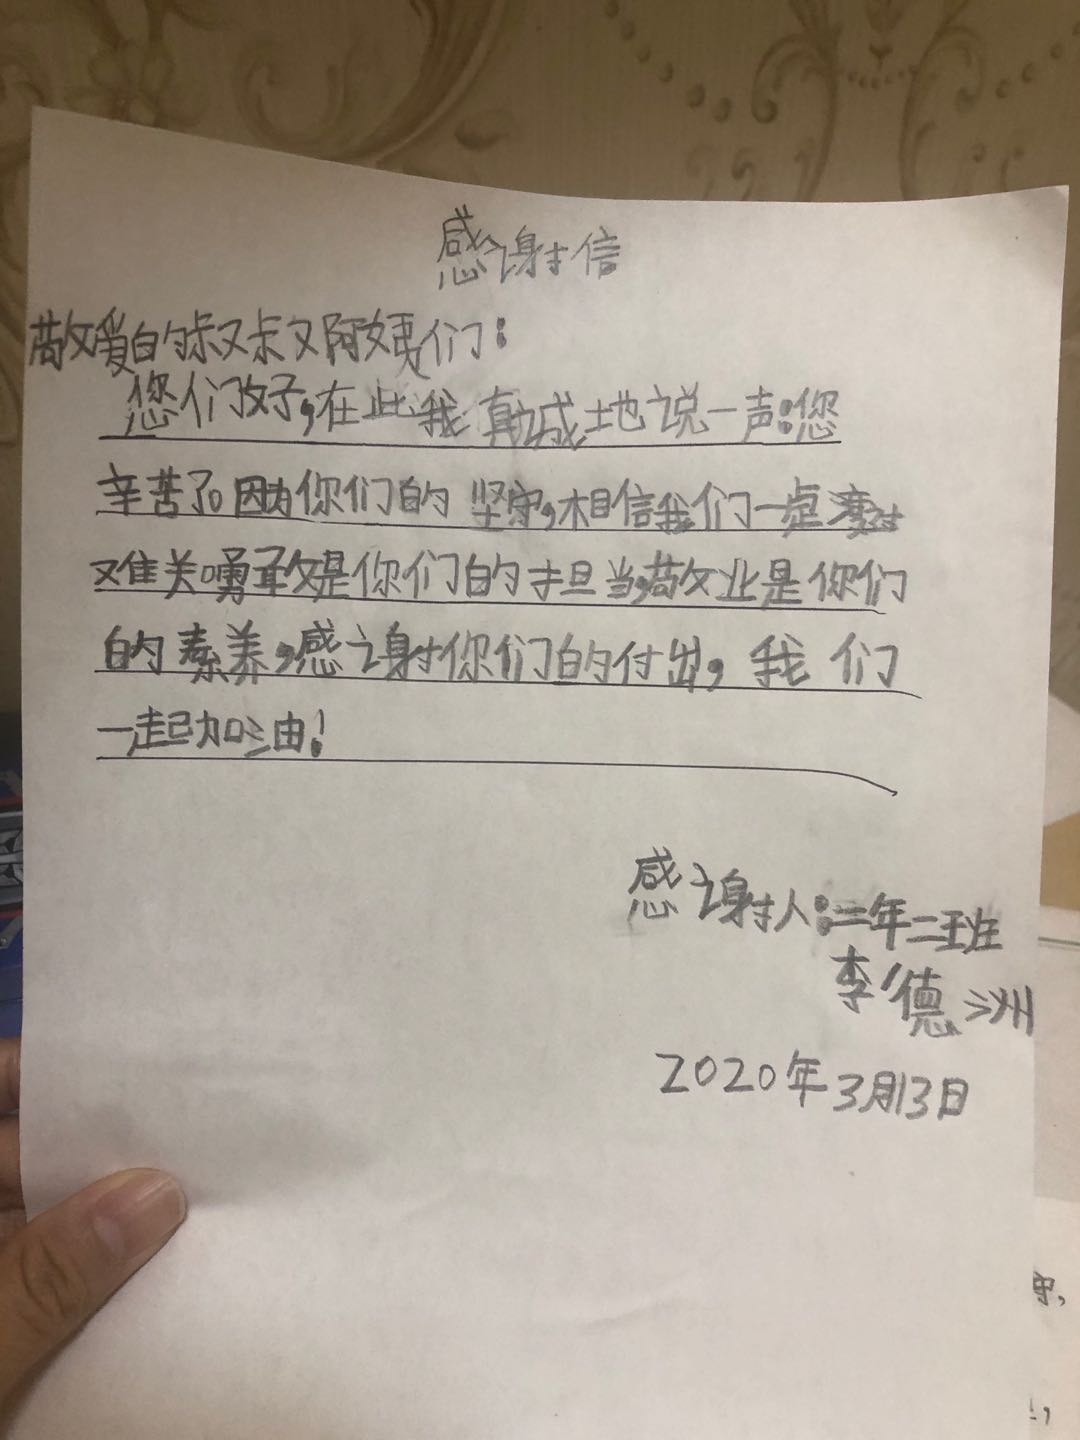 感谢信
敬爱的叔叔阿姨们：
您们好，在此我真诚地说一声：您
辛苦了。因为你们的坚守，相信我们一定渡过
难关。勇敢是你们的担当，敬业是你们
的素养，感谢你们的付出，我们
一起加油！
感谢人：二年二班
李德洲
2020年3月13日
守，